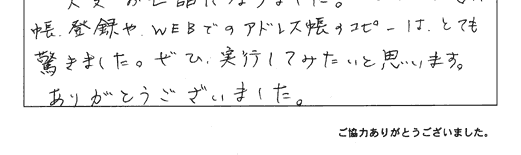 帳、登録や、WEBでのアドレス帳のコピーは、とても
驚きました。ぜひ、実行してみたいと思います。
ありがとうございました。
ご協力ありがとうございました。